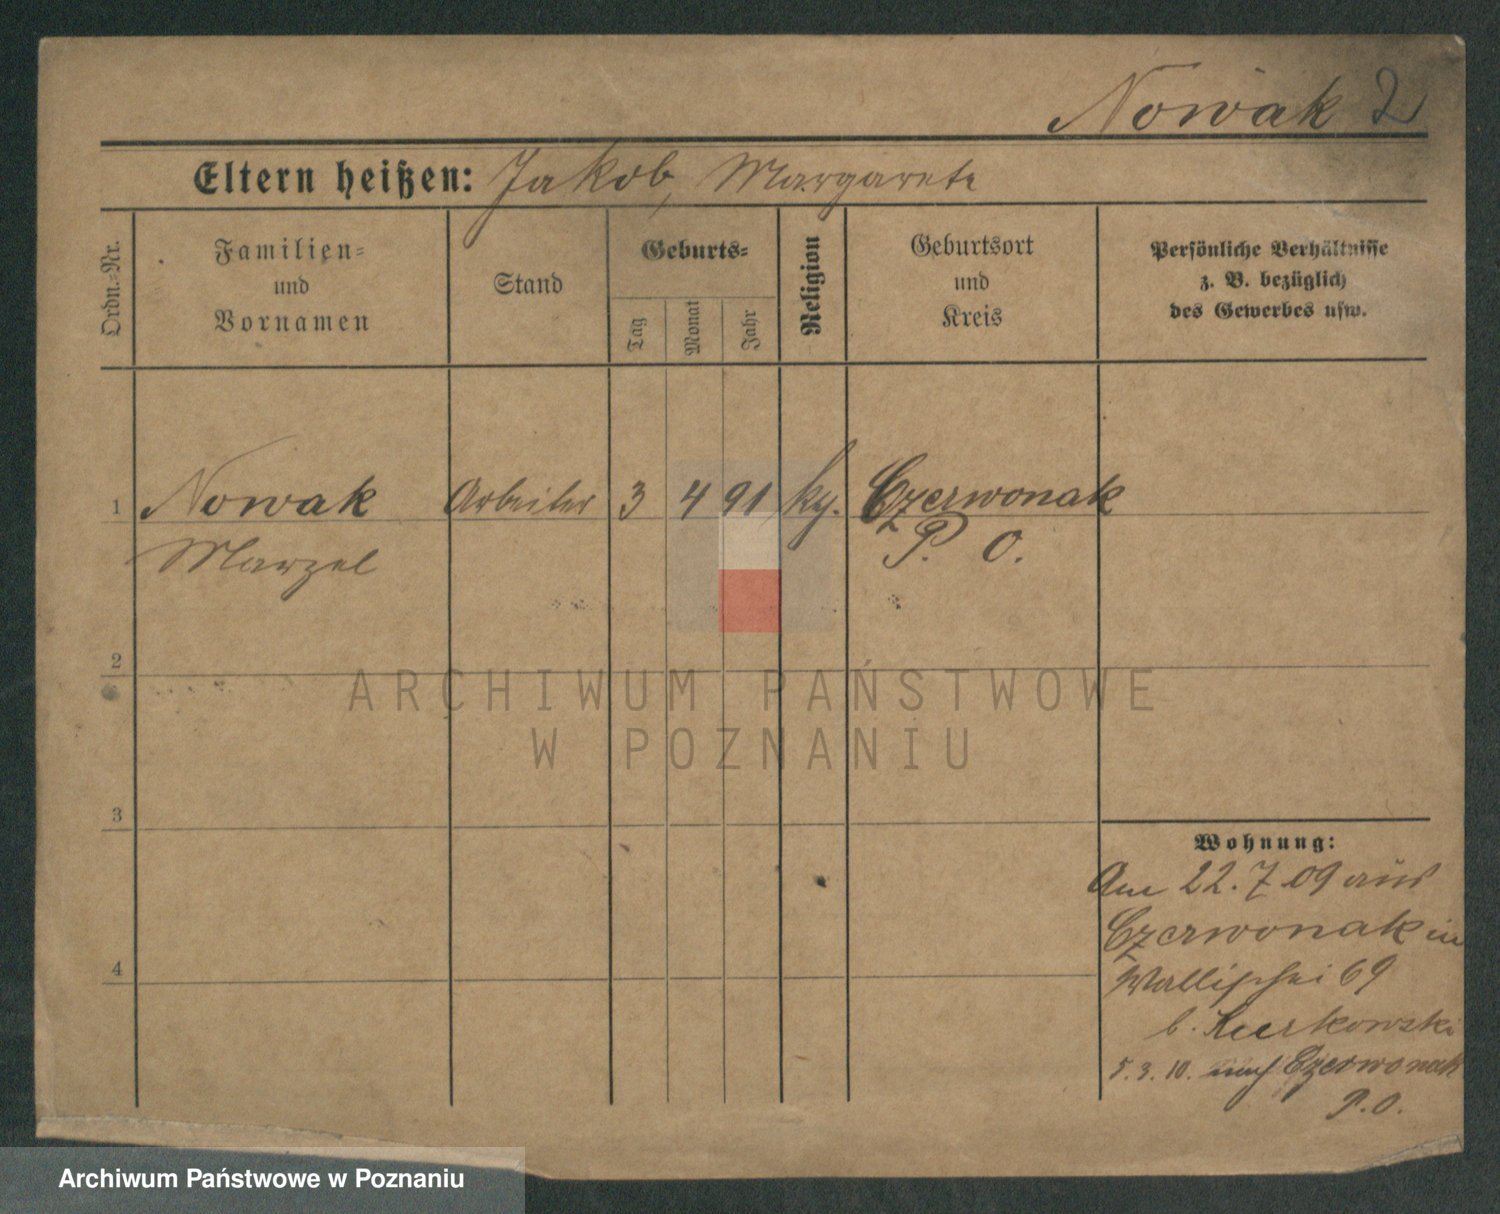 Nowak 2
Eltern heißen: Jakob, Margarete
Ordn.-Nr.
Familien-
und
Vornamen
Stand
Geburts-
Tag
Monat
Jahr
Religion
Geburtsort
und
Kreis
Persönliche Verhältnisse
z. B. bezüglich
des Gewerbes usw.
1 Nowak Arbeiter 3 4 91 kg. Czerwonak
Marzel P. O.
2
ARCHIWUM PAŃSTWOWE
W POZNANIU
3
Wohnung:
Am 22.7 09 aus
Czerwonak in
Wallischei 69
4
b. Kurkowski
5.3.10. nach Czerwonak
P.O.
Archiwum Państwowe w Poznaniu